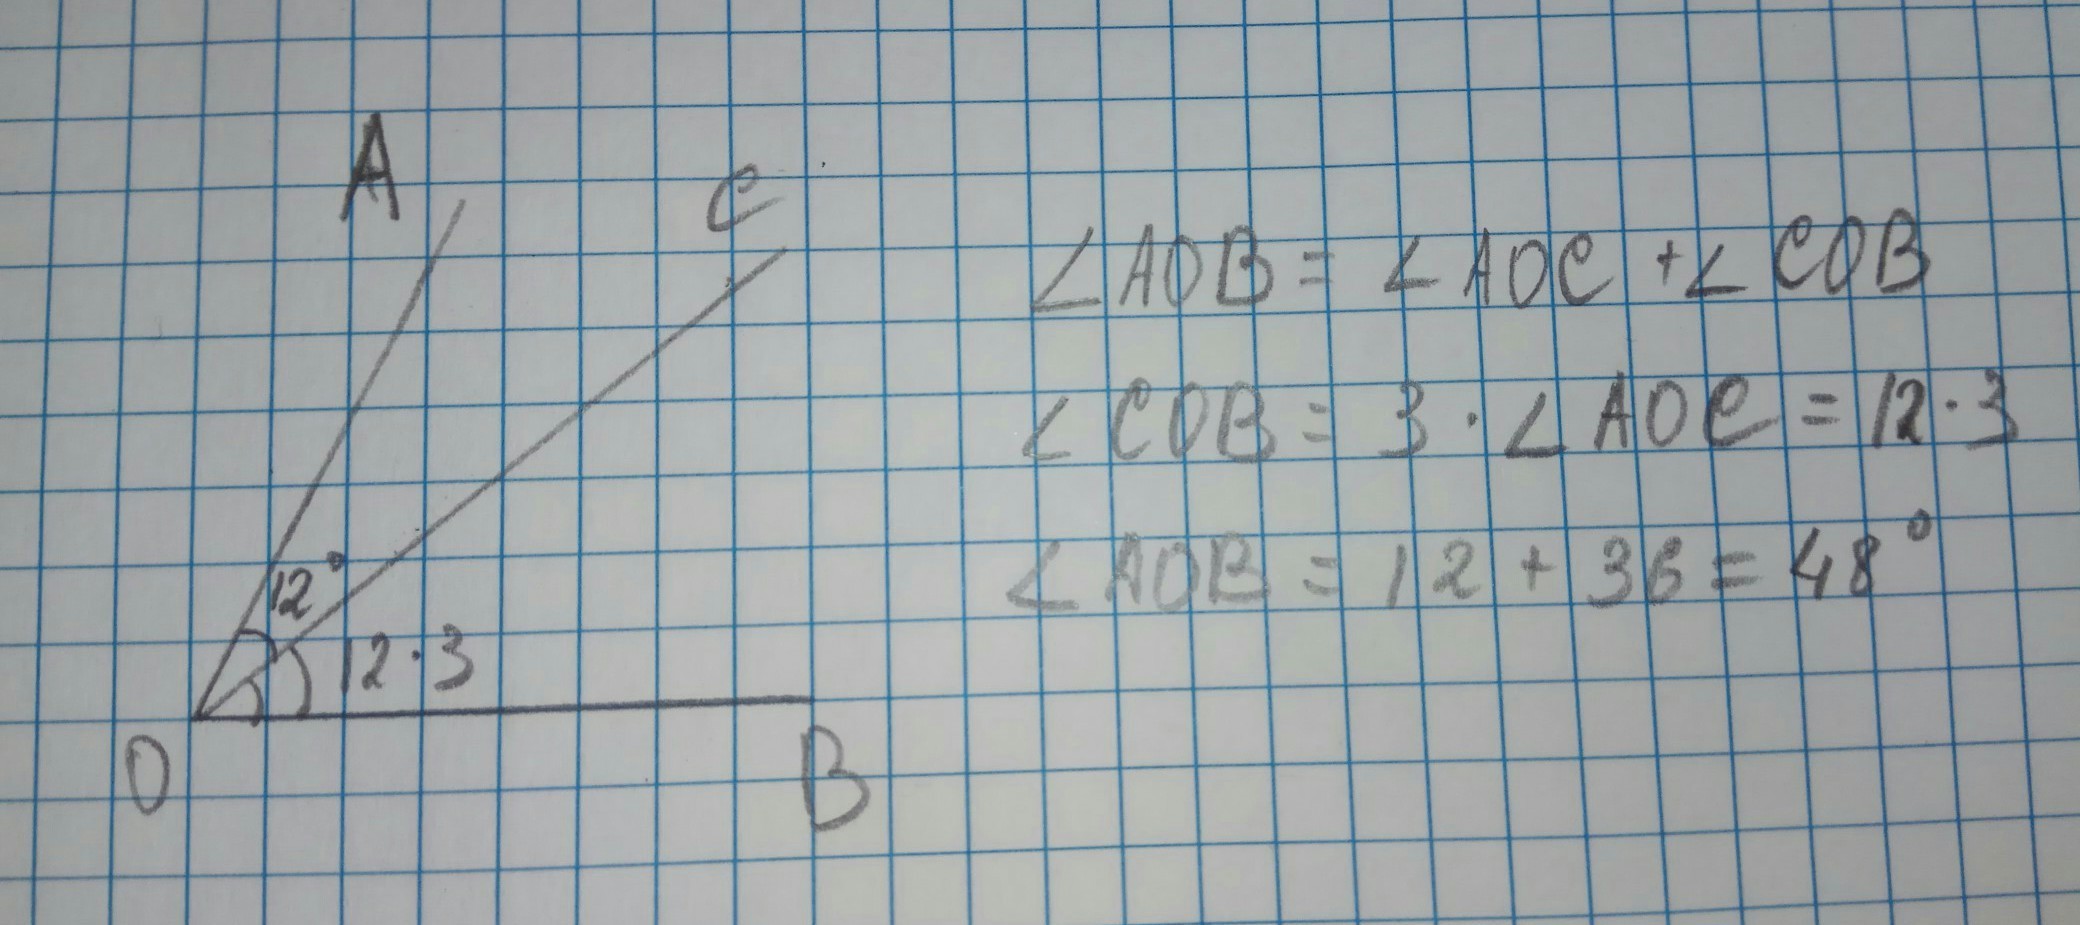 A
C
12°
12·3
O
B
∠AOB = ∠AOC + ∠COB
∠COB = 3·∠AOC = 12·3
∠AOB = 12 + 36 = 48°